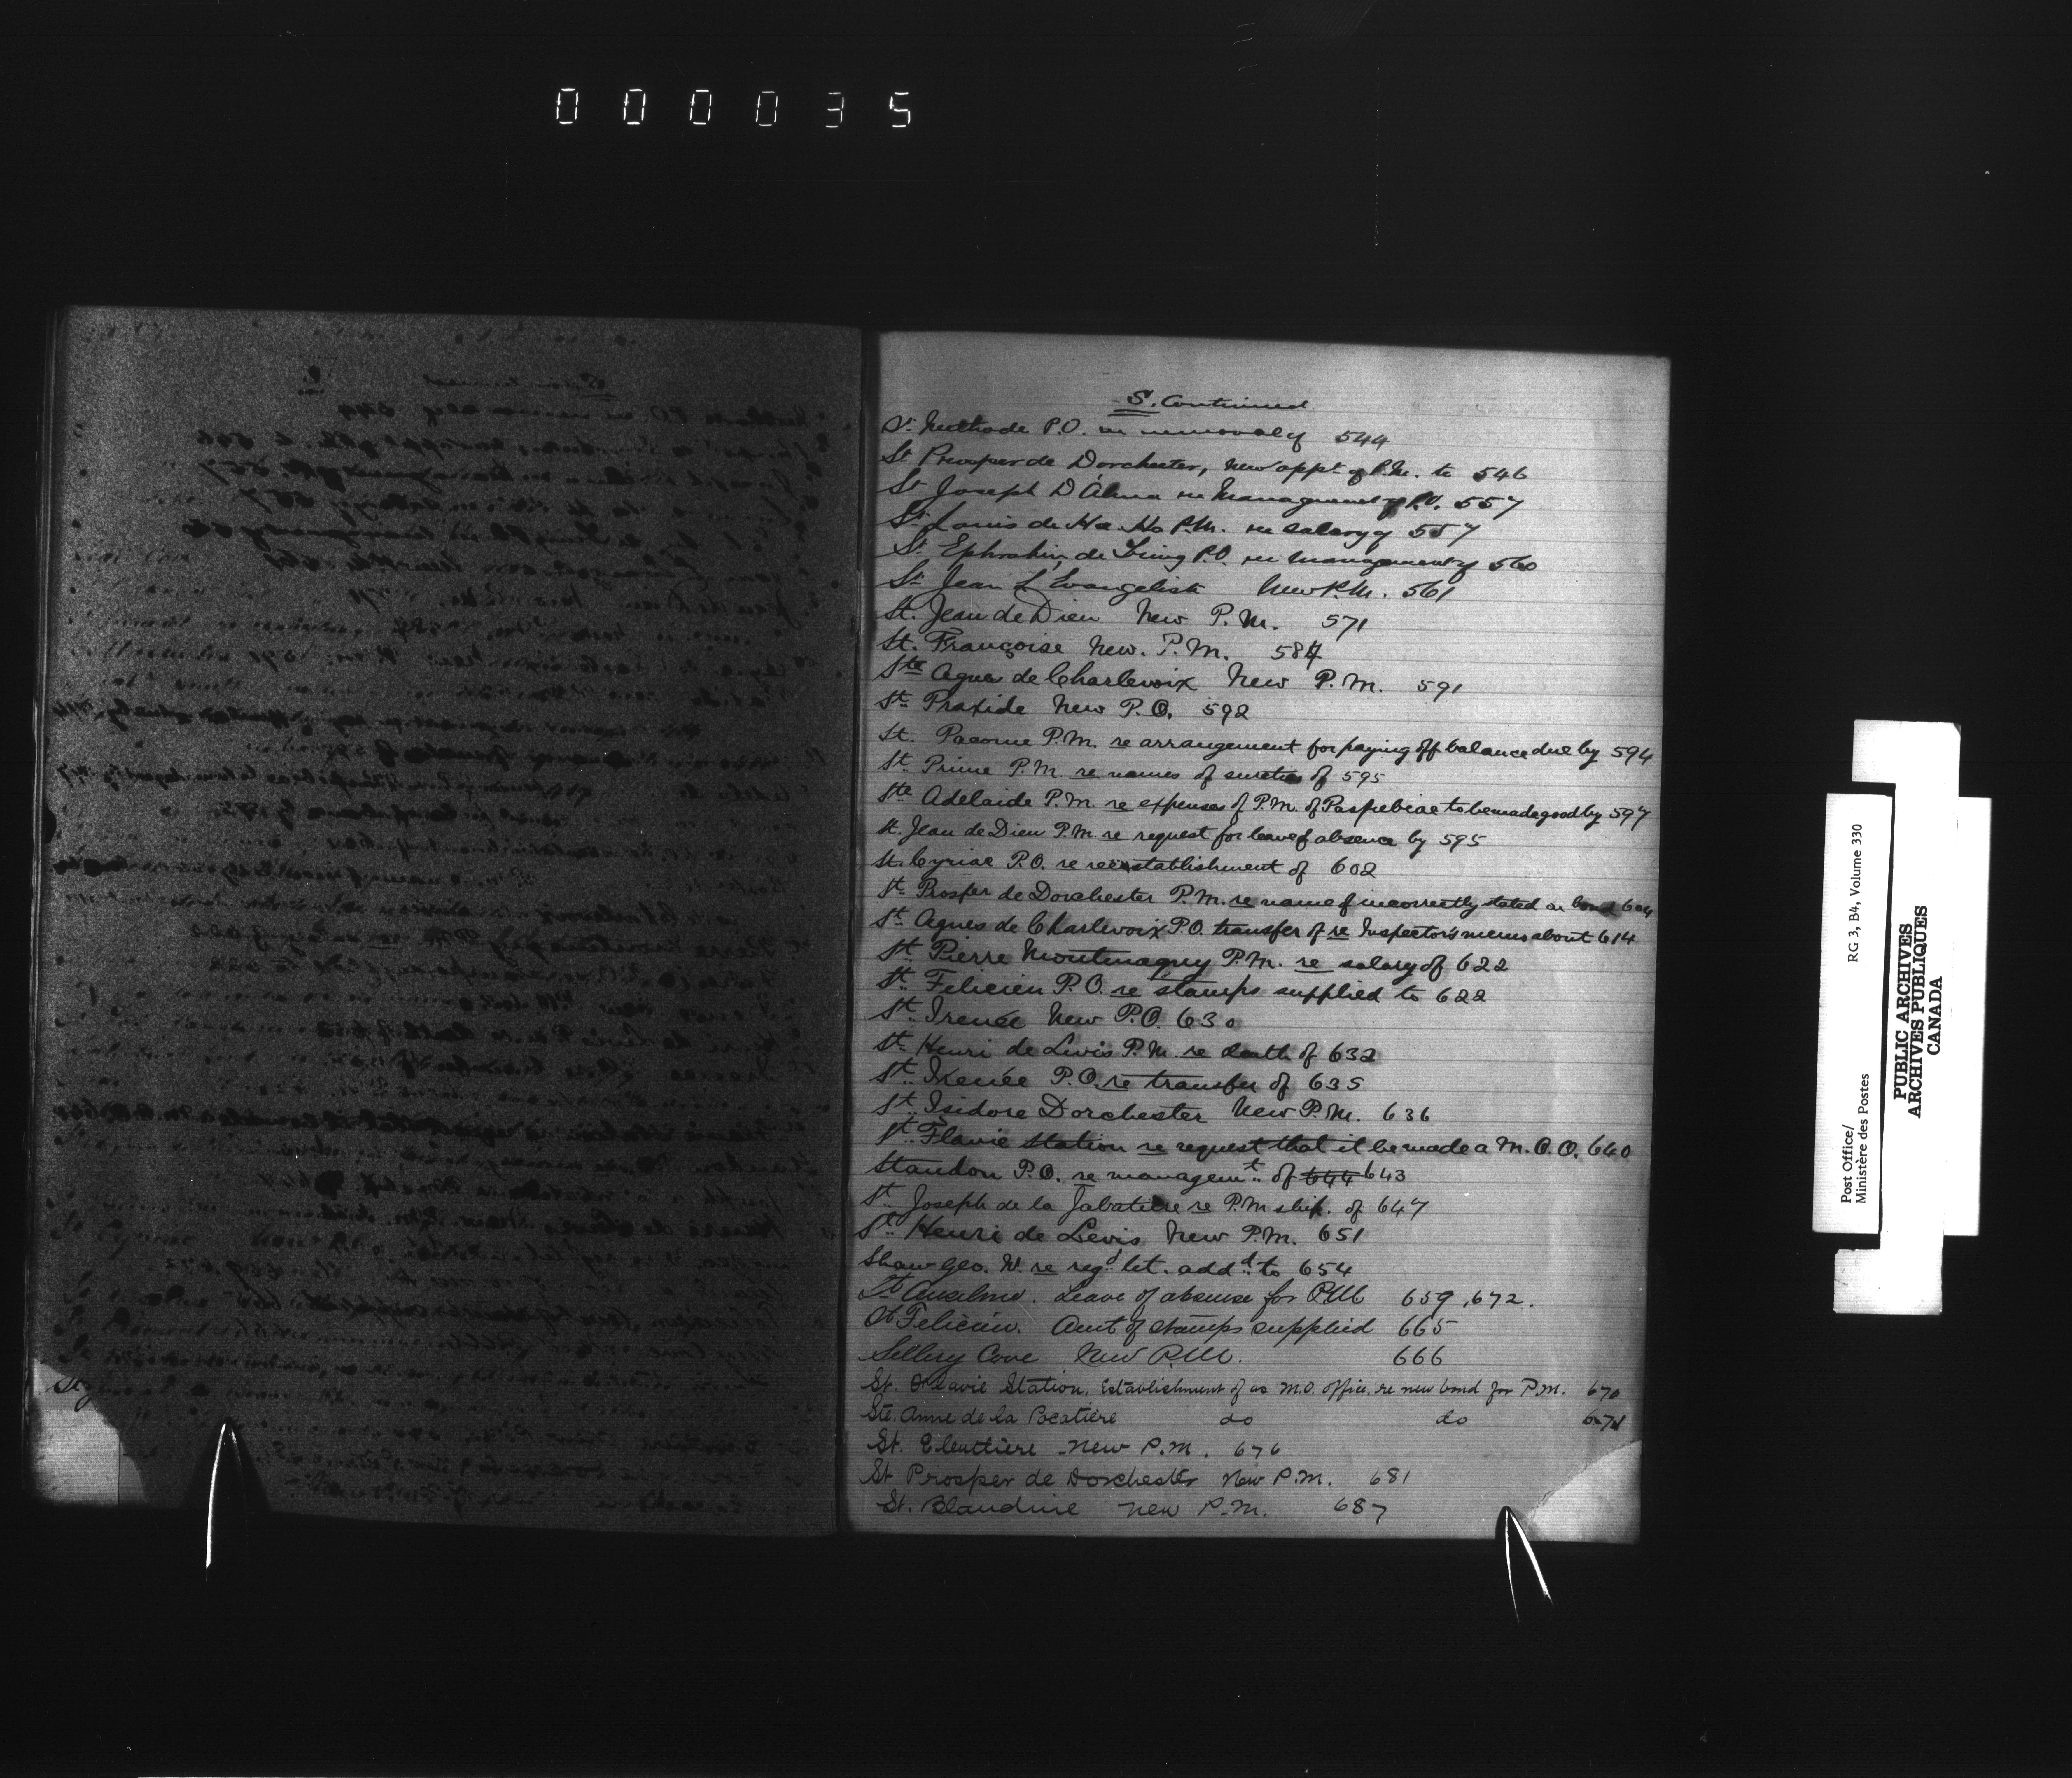 000035
S. Continued
St Methode P.O. re removal of 544
St Prosper de Dorchester, new appt of P.M. to 546
St Joseph D'Alma re Management of P.O. 557
St Louis de Ha Ha P.M. re salary of 557
St Ephrahim de Tring P.O. re management of 560
St Jean L'Evangeliste New P.M. 561
St. Jean de Dieu New P.M. 571
St. Françoise New. P.M. 584
Ste Agnes de Charlevoix New P.M. 591
St Praxide New P.O. 592
St. Pacome P.M. re arrangement for paying off balance due by 594
St Prime P.M. re names of sureties of 595
Ste Adelaide P.M. re expenses of P.M. of Paspebiac to be made good by 597
St. Jean de Dieu P.M. re request for leave of absence by 595
St. Cyriac P.O. re reestablishment of 602
St. Prosper de Dorchester P.M. re name of incorrectly stated on bond 604
St. Agnes de Charlevoix P.O. transfer of re Inspector's memo about 614
St. Pierre Montmagny P.M. re salary of 622
St. Felicien P.O. re stamps supplied to 622
St. Irenée New P.O. 630
St. Henri de Levis P.M. re death of 632
St. Irenée P.O. re transfer of 635
St. Isidore Dorchester New P.M. 636
St. Flavie Station re request that it be made a M.O.O. 640
Standon P.O. re managemt. of 644 643
St. Joseph de la Jabatiere re P.M ship. of 647
St. Henri de Levis New P.M. 651
Shaw Geo. W. re regd let. addd to 654
St Anselme. Leave of absence for P.M. 659, 672.
St Felicien. Amt of stamps supplied 665
Sillery Cove New P.M. 666
St. Octavie Station, Establishment of as M.O. office, re new bond for P.M. 670
Ste. Anne de la Pocatière do do 671
St. Eleuthère New P.M. 676
St Prosper de Dorchester New P.M. 681
St. Blandine New P.M. 687
Post Office/
Ministère des Postes
RG 3, B4, Volume 330
PUBLIC ARCHIVES
ARCHIVES PUBLIQUES
CANADA